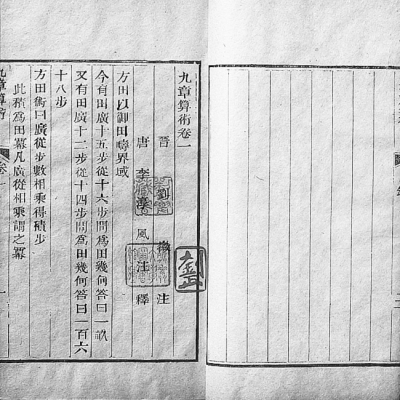 九章算術卷一
晉 劉徽 注
唐 李淳風 注釋
方田以御田疇界域
今有田廣十五步從十六步問為田幾何答曰一畝
又有田廣十二步從十四步問為田幾何答曰一百六
十八步
方田術曰廣從步數相乘得積步
此積為田冪凡廣從相乘謂之冪
九章算術 卷一